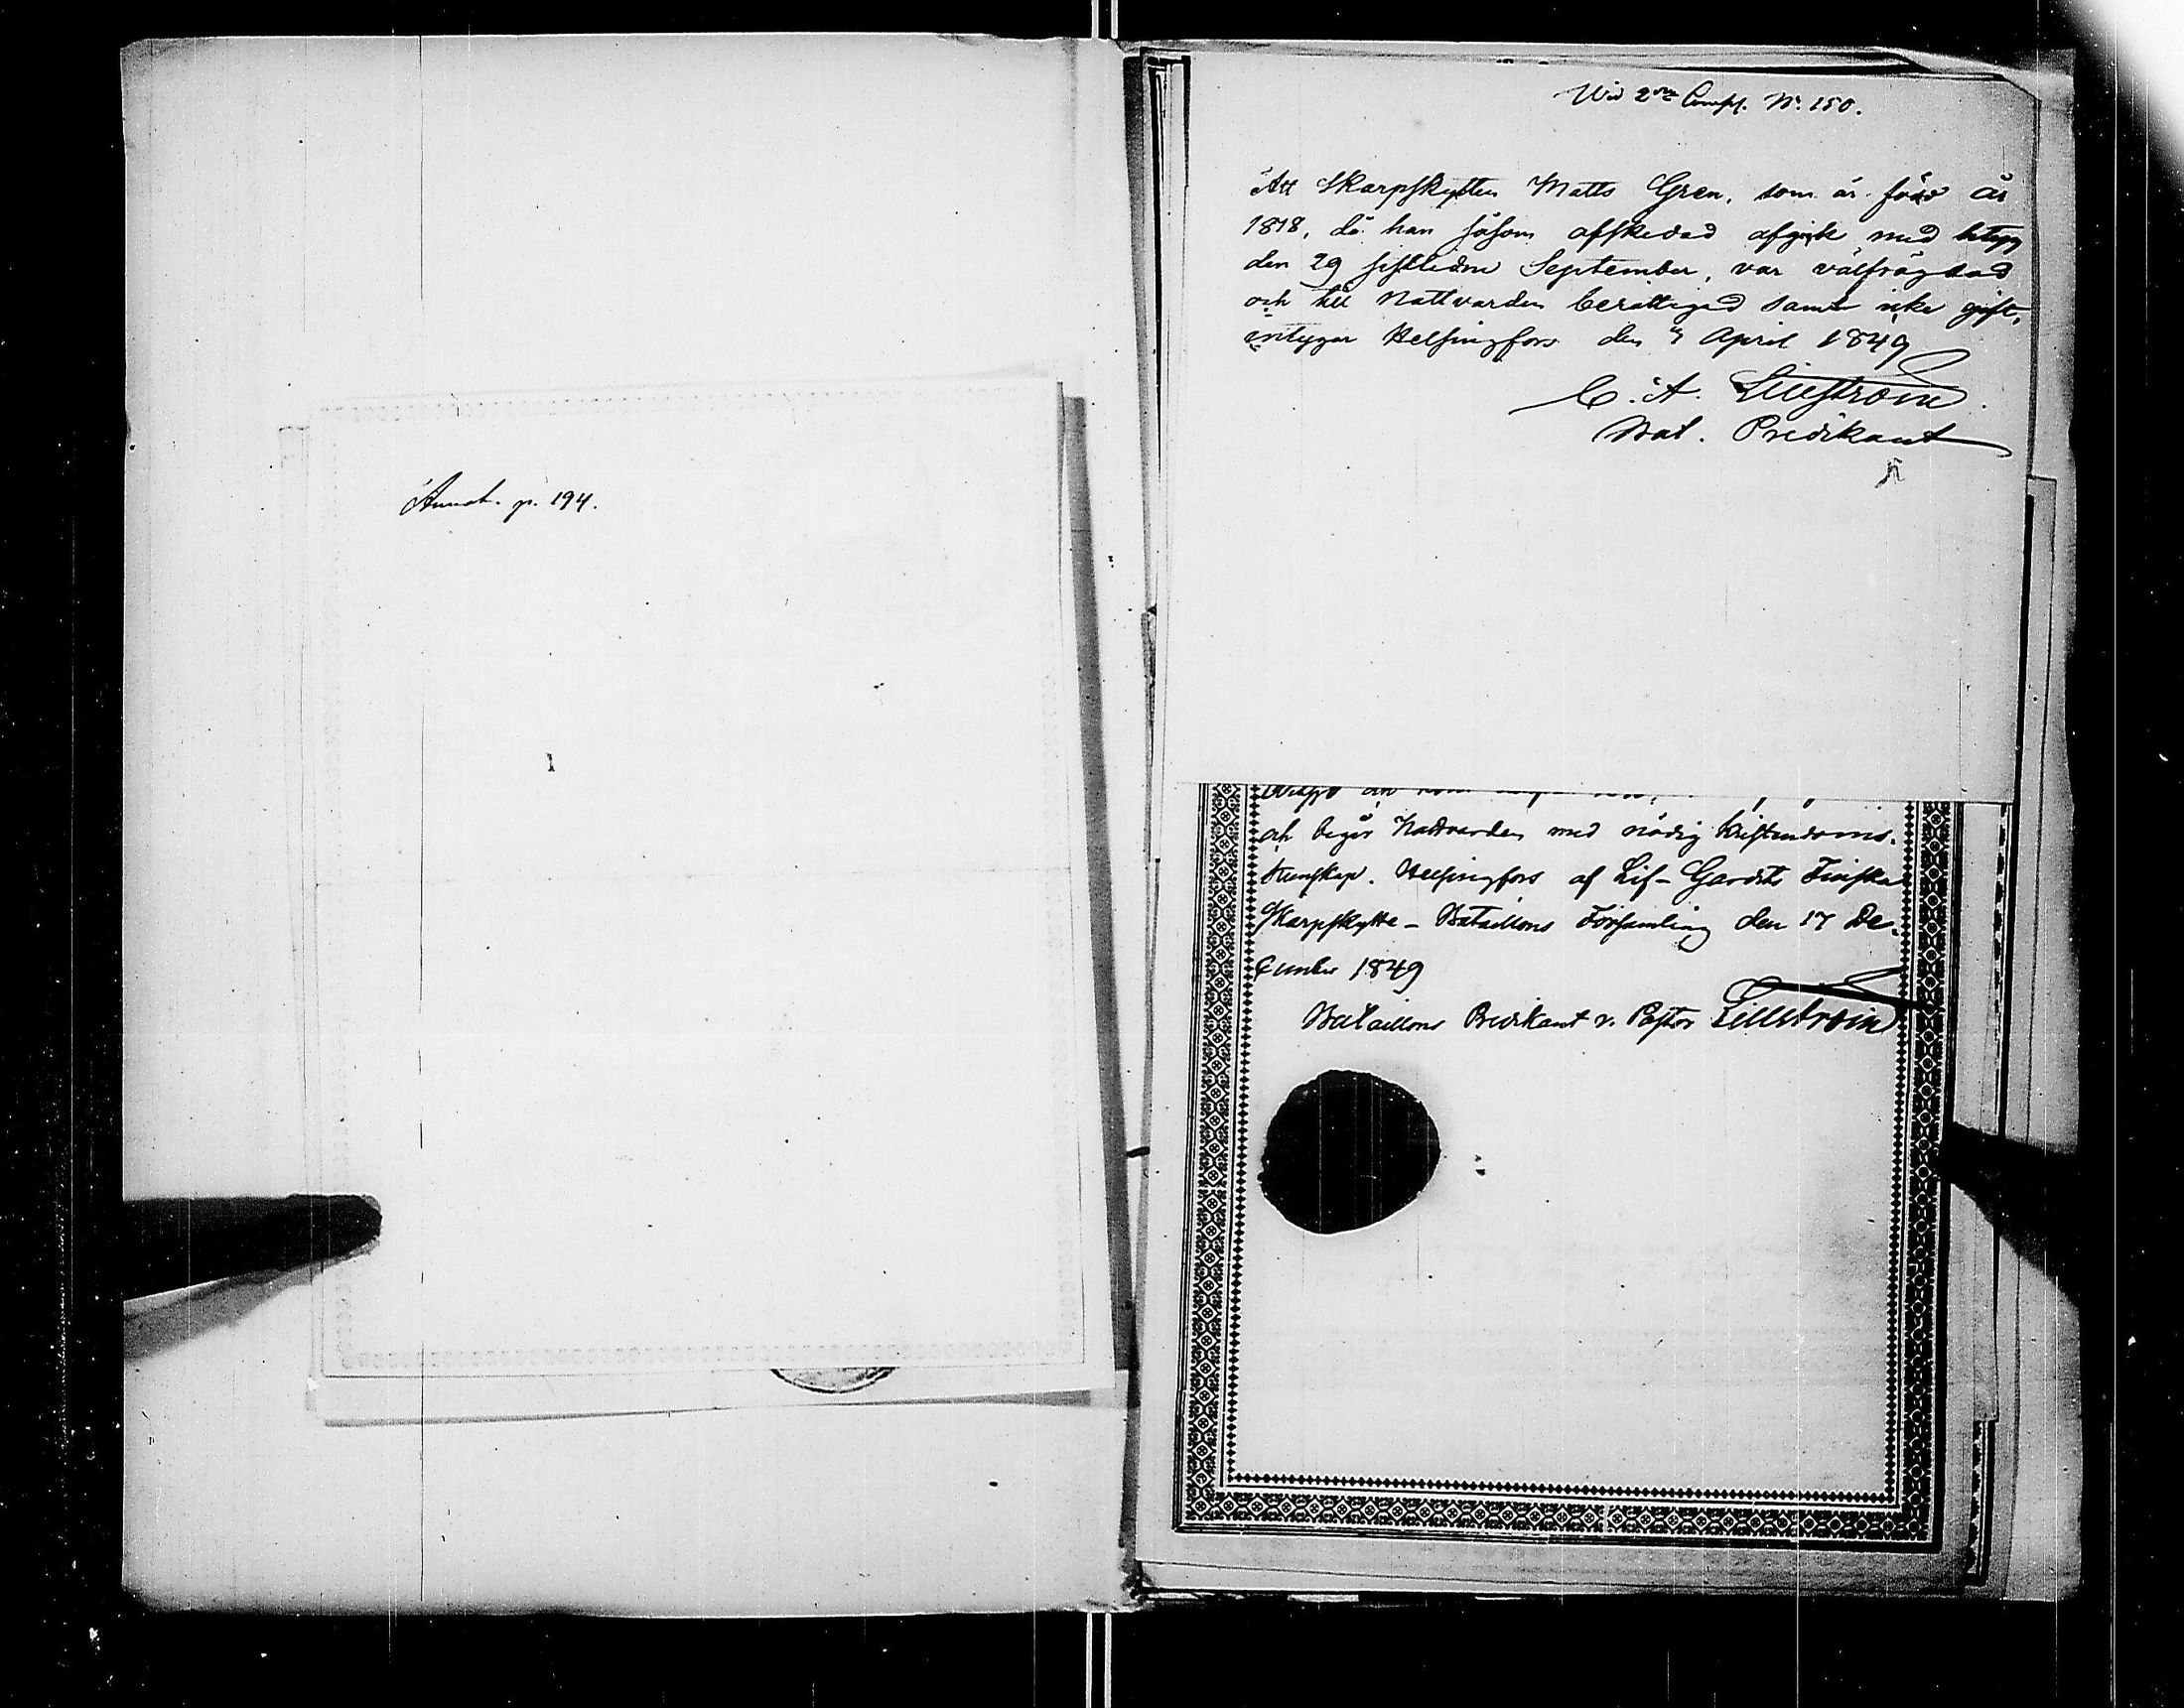 Annot. p. 194.
Wid 2dra Comp. No. 150.
Att Skarpskytten Matts Gren, som är född år
1818, då han såsom afskedad afgick med betyg
den 29 sistledne September, var välfrägdad
och till Nattvarden berättigad samt icke gift,
intygar Helsingfors den 4 April 1849
C. A. Lilljström.
Bat. Predikant
och begår Nattvarden med nödig kristendoms-
kunskap. Helsingfors af Lif-Gardets Finska
Skarpskytte-Bataillons Församling den 17 De-
cember 1849
Bataillons Predikant v. Pastor Lillström